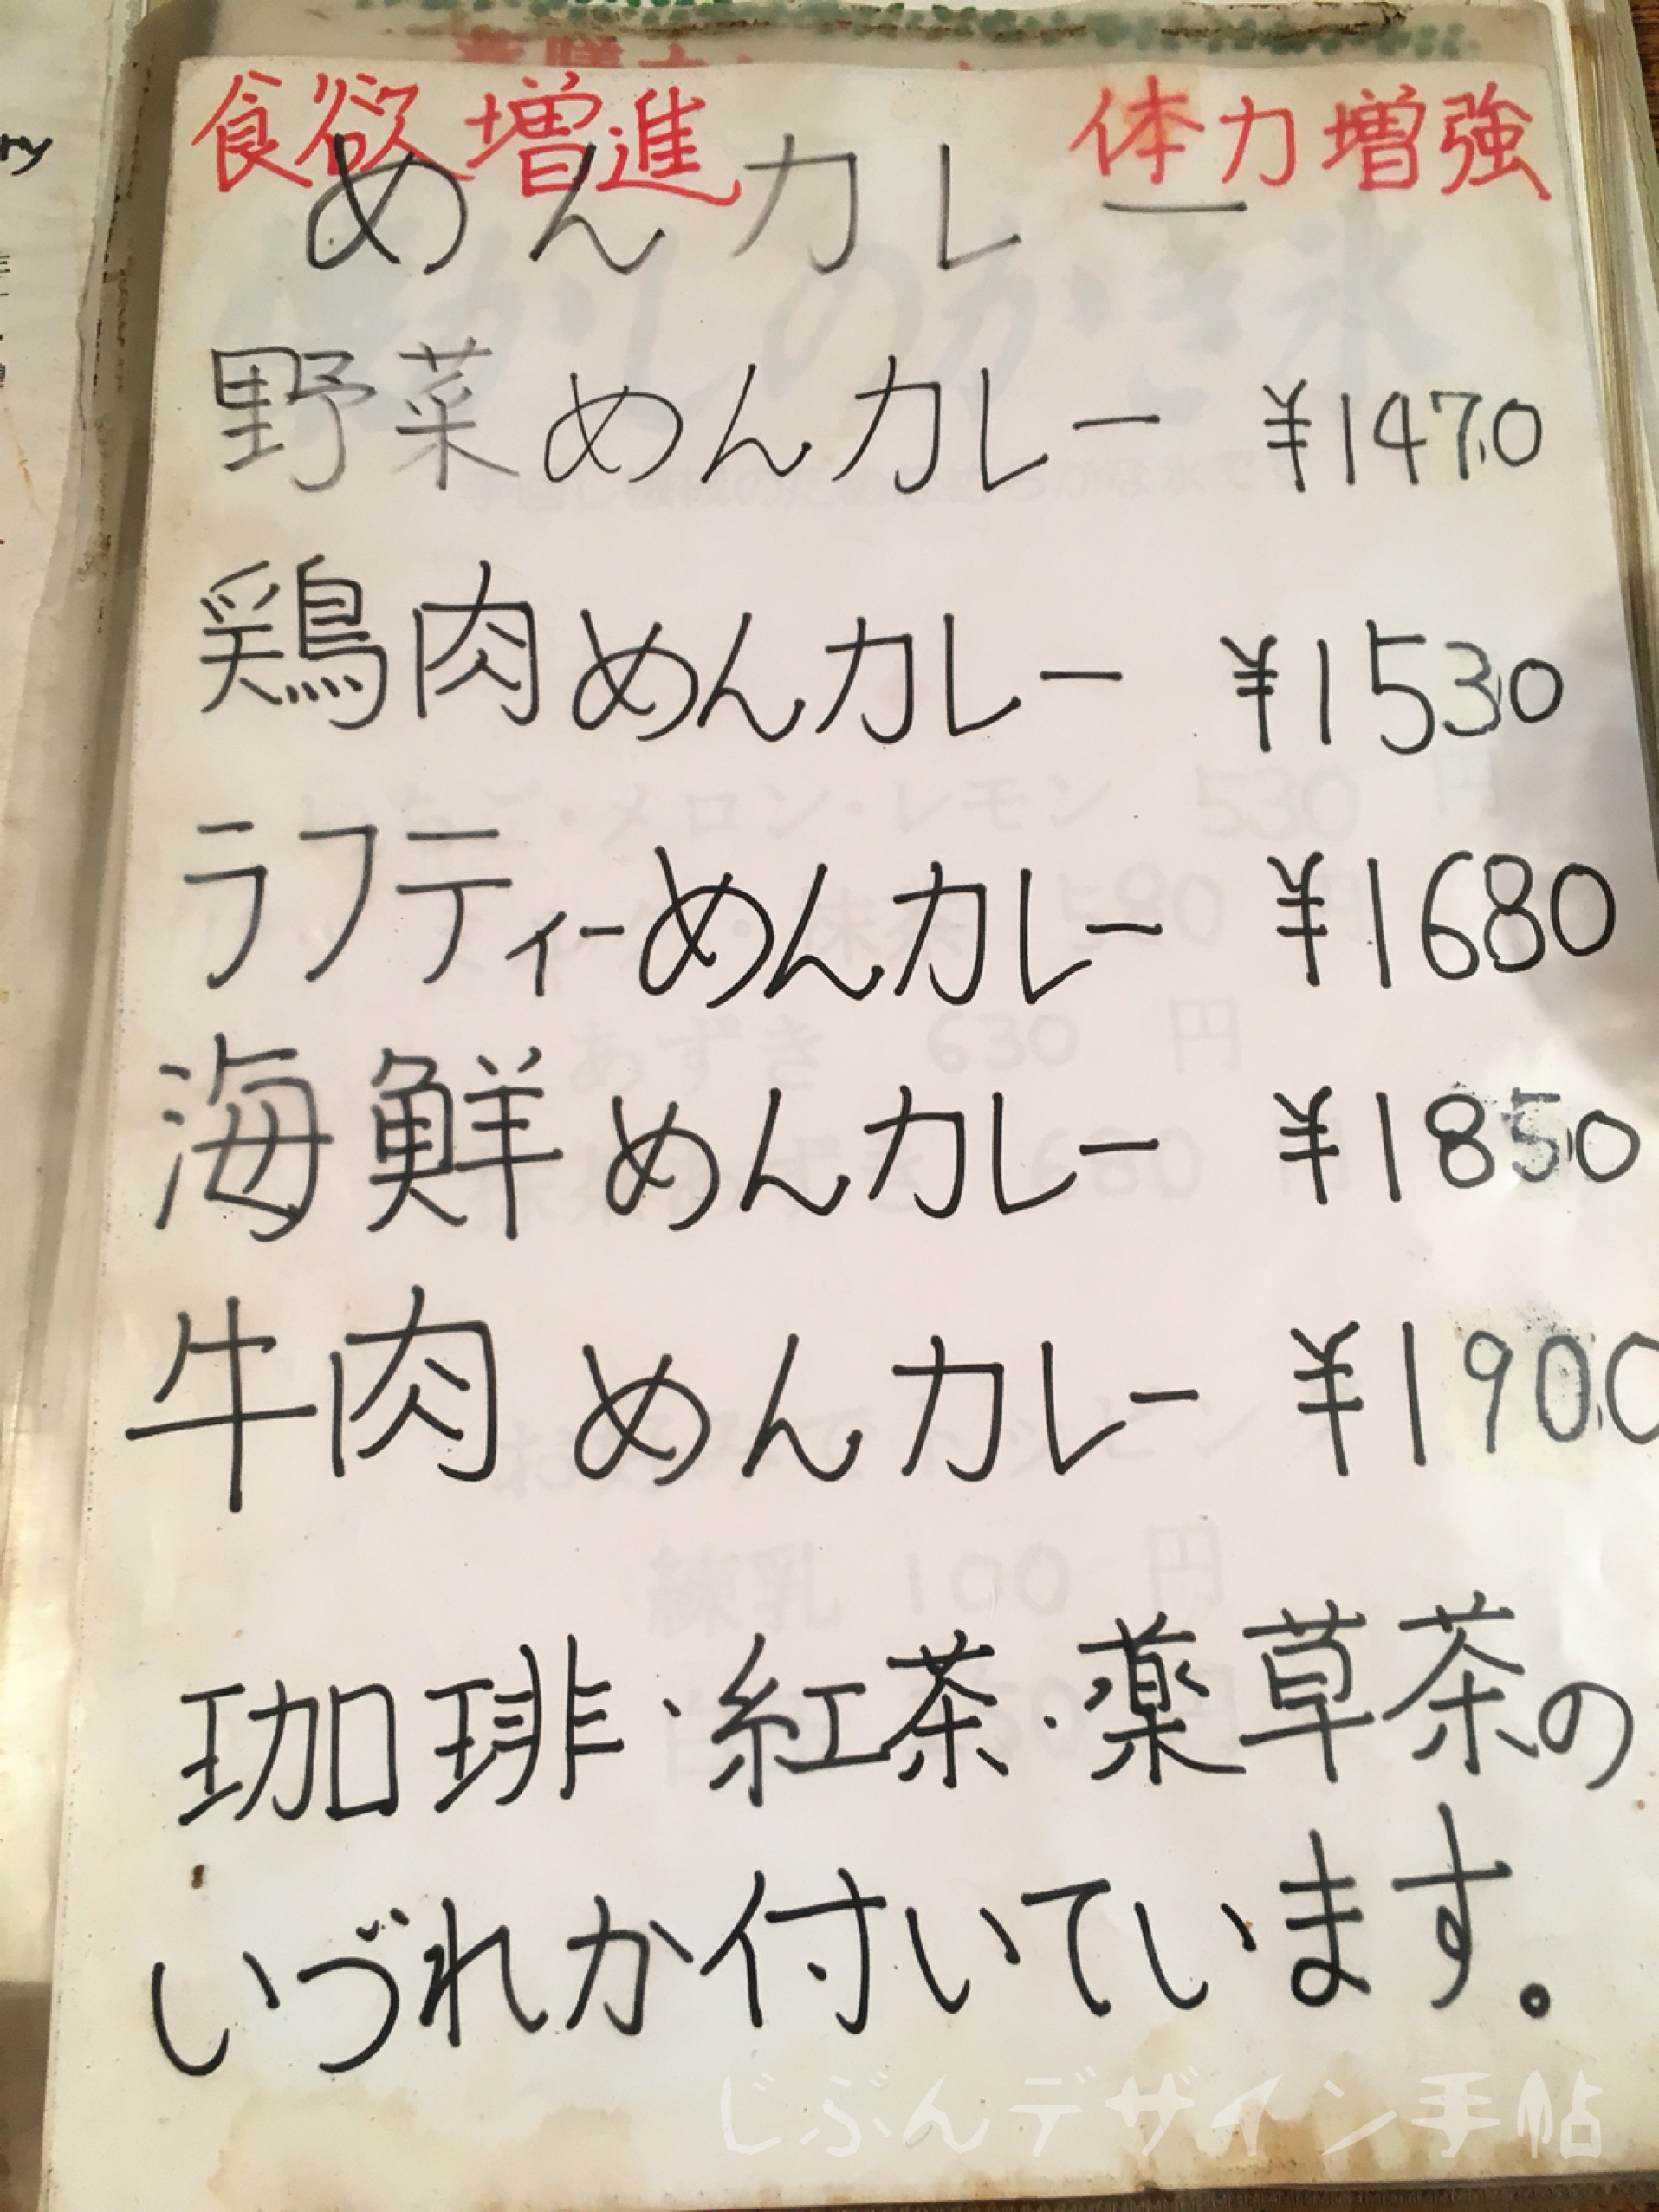 食欲増進 体力増強
めんカレー
野菜めんカレー ¥1470
鶏肉めんカレー ¥1530
ラフティーめんカレー ¥1680
海鮮めんカレー ¥1850
牛肉めんカレー ¥1900
珈琲・紅茶・薬草茶の
いづれか付いています。
じぶんデザイン手帖